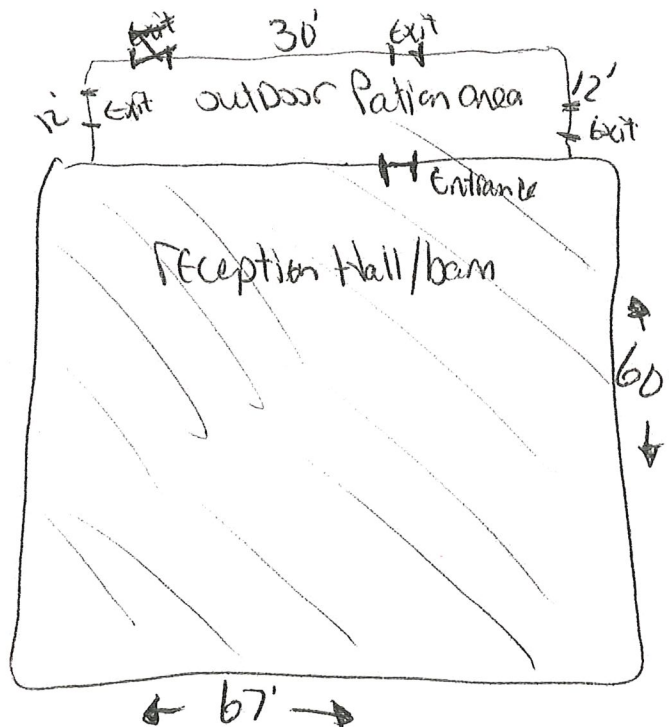 Exit
30'
Exit
12'
Exit
outDoor Pation area
12'
Exit
Entrance
reception Hall/barn
60
67'